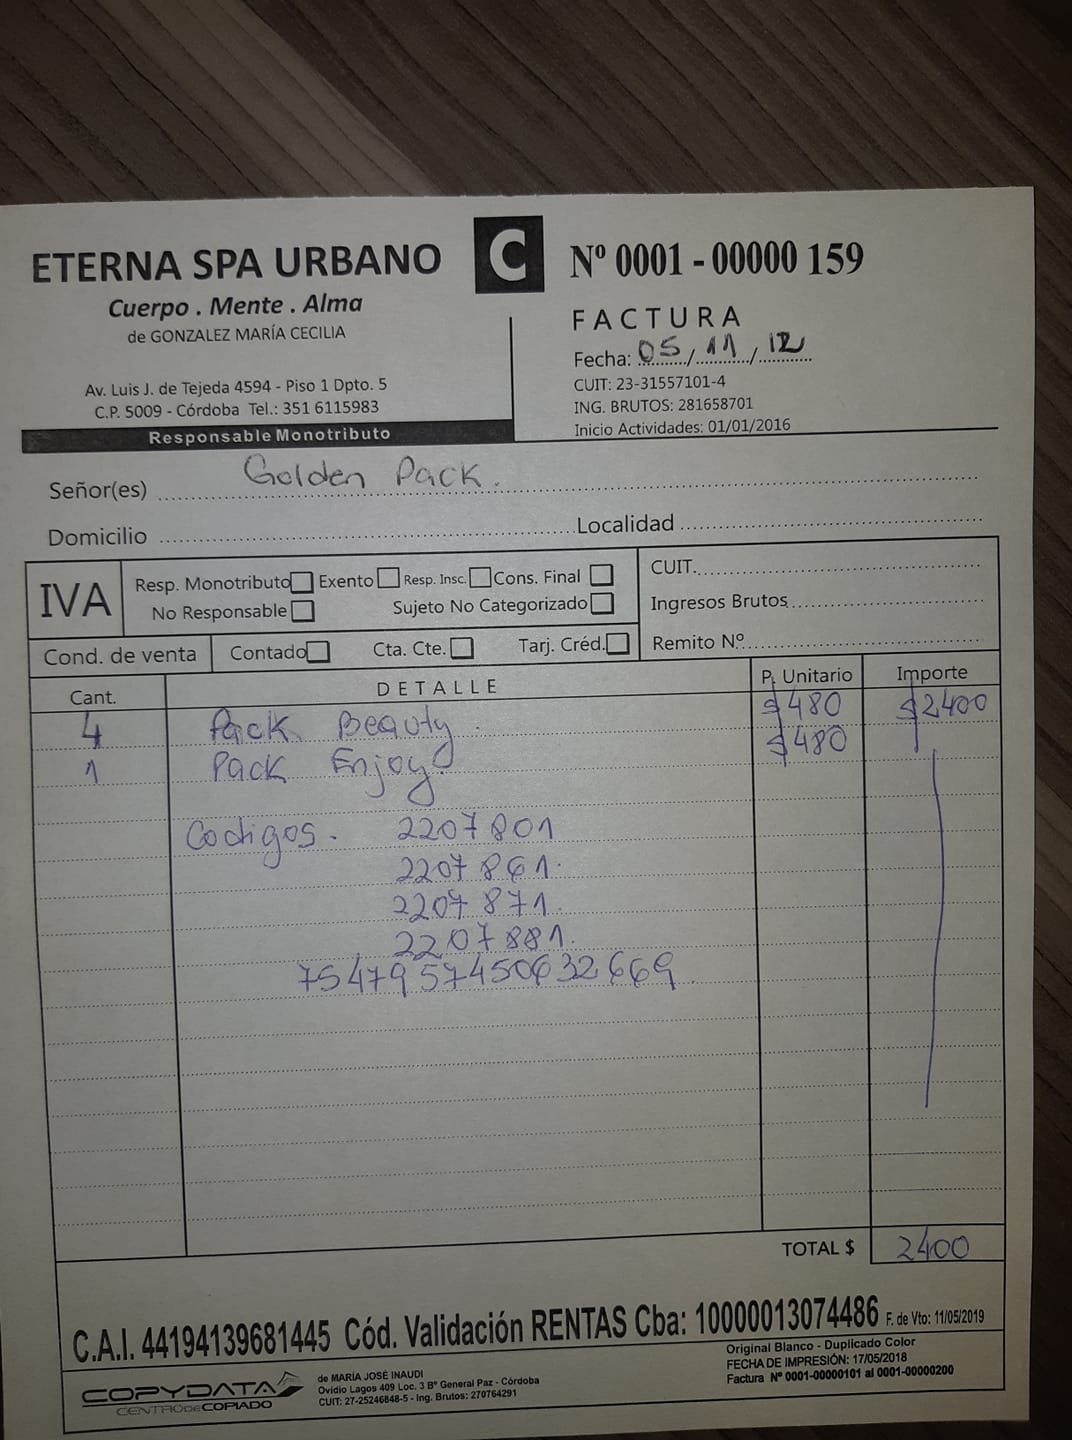 ETERNA SPA URBANO
Cuerpo . Mente . Alma
de GONZALEZ MARÍA CECILIA
Av. Luis J. de Tejeda 4594 - Piso 1 Dpto. 5
C.P. 5009 - Córdoba Tel.: 351 6115983
Responsable Monotributo
C
Nº 0001 - 00000 159
FACTURA
Fecha: 05/11/12
CUIT: 23-31557101-4
ING. BRUTOS: 281658701
Inicio Actividades: 01/01/2016
Señor(es) Golden Pack.
Domicilio Localidad
IVA
Resp. Monotributo Exento Resp. Insc. Cons. Final
No Responsable Sujeto No Categorizado
CUIT.
Ingresos Brutos
Remito Nº
Cond. de venta Contado Cta. Cte. Tarj. Créd.
Cant. DETALLE P. Unitario Importe
4 Pack Beauty $480 $2400
1 Pack Enjoy. $480
Codigos. 2207801
2207861.
2207871.
2207881.
7547957450632669.
TOTAL $ 2400
C.A.I. 44194139681445 Cód. Validación RENTAS Cba: 10000013074486 F. de Vto: 11/05/2019
COPYDATA
CENTRO DE COPIADO
de MARÍA JOSÉ INAUDI
Ovidio Lagos 409 Loc. 3 Bº General Paz - Córdoba
CUIT: 27-25246848-5 - Ing. Brutos: 270764291
Original Blanco - Duplicado Color
FECHA DE IMPRESIÓN: 17/05/2018
Factura Nº 0001-00000101 al 0001-00000200